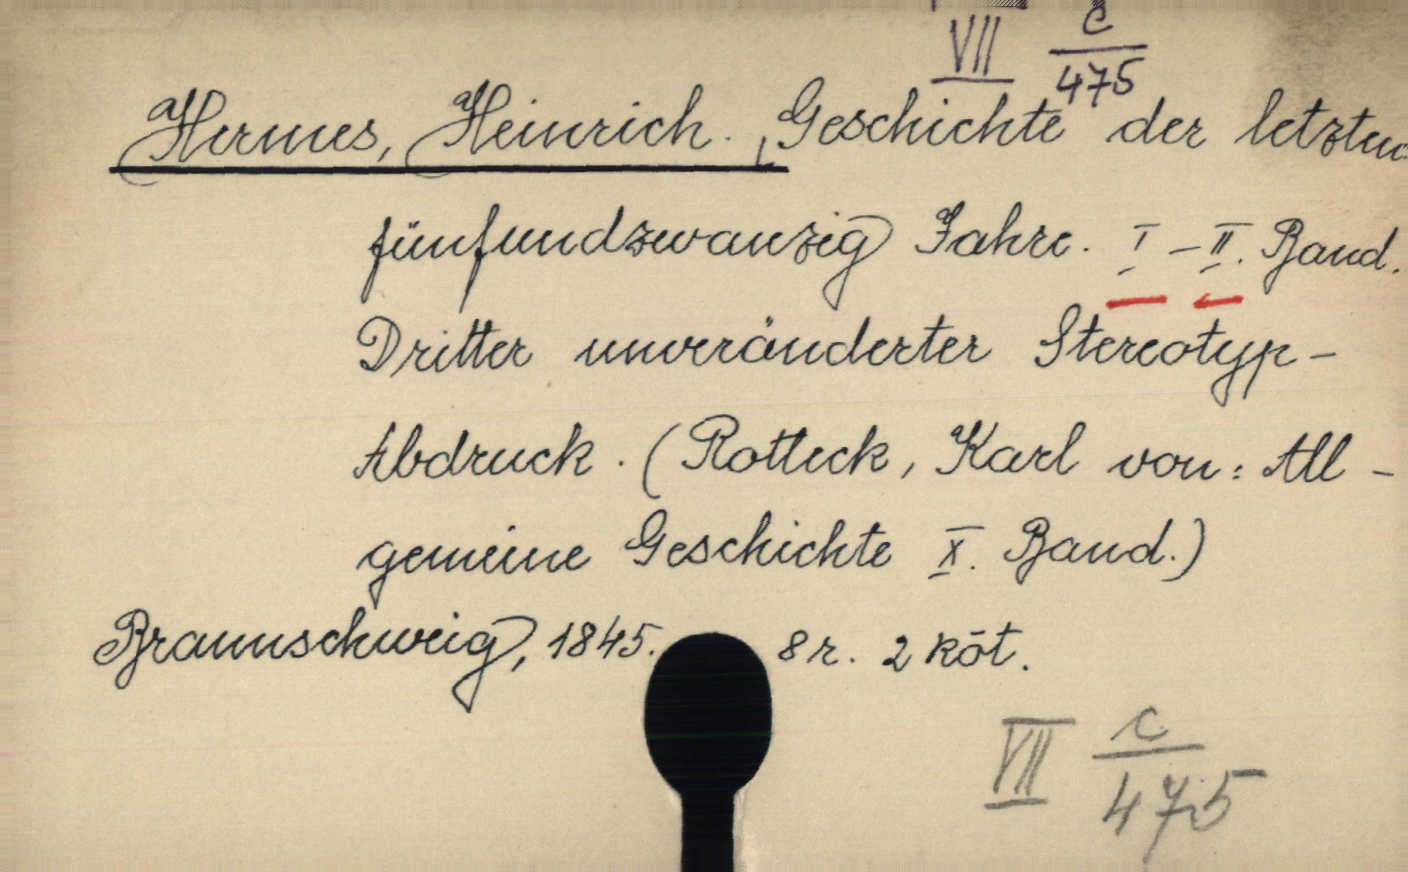 VII c/475
Hermes, Heinrich. Geschichte der letzten
fünfundzwanzig Jahre. I–II. Band.
Dritter unveränderter Stereotyp-
Abdruck. (Rotteck, Karl von: All-
gemeine Geschichte X. Band.)
Braunschweig, 1845. 8 r. 2 köt.
VII c/475